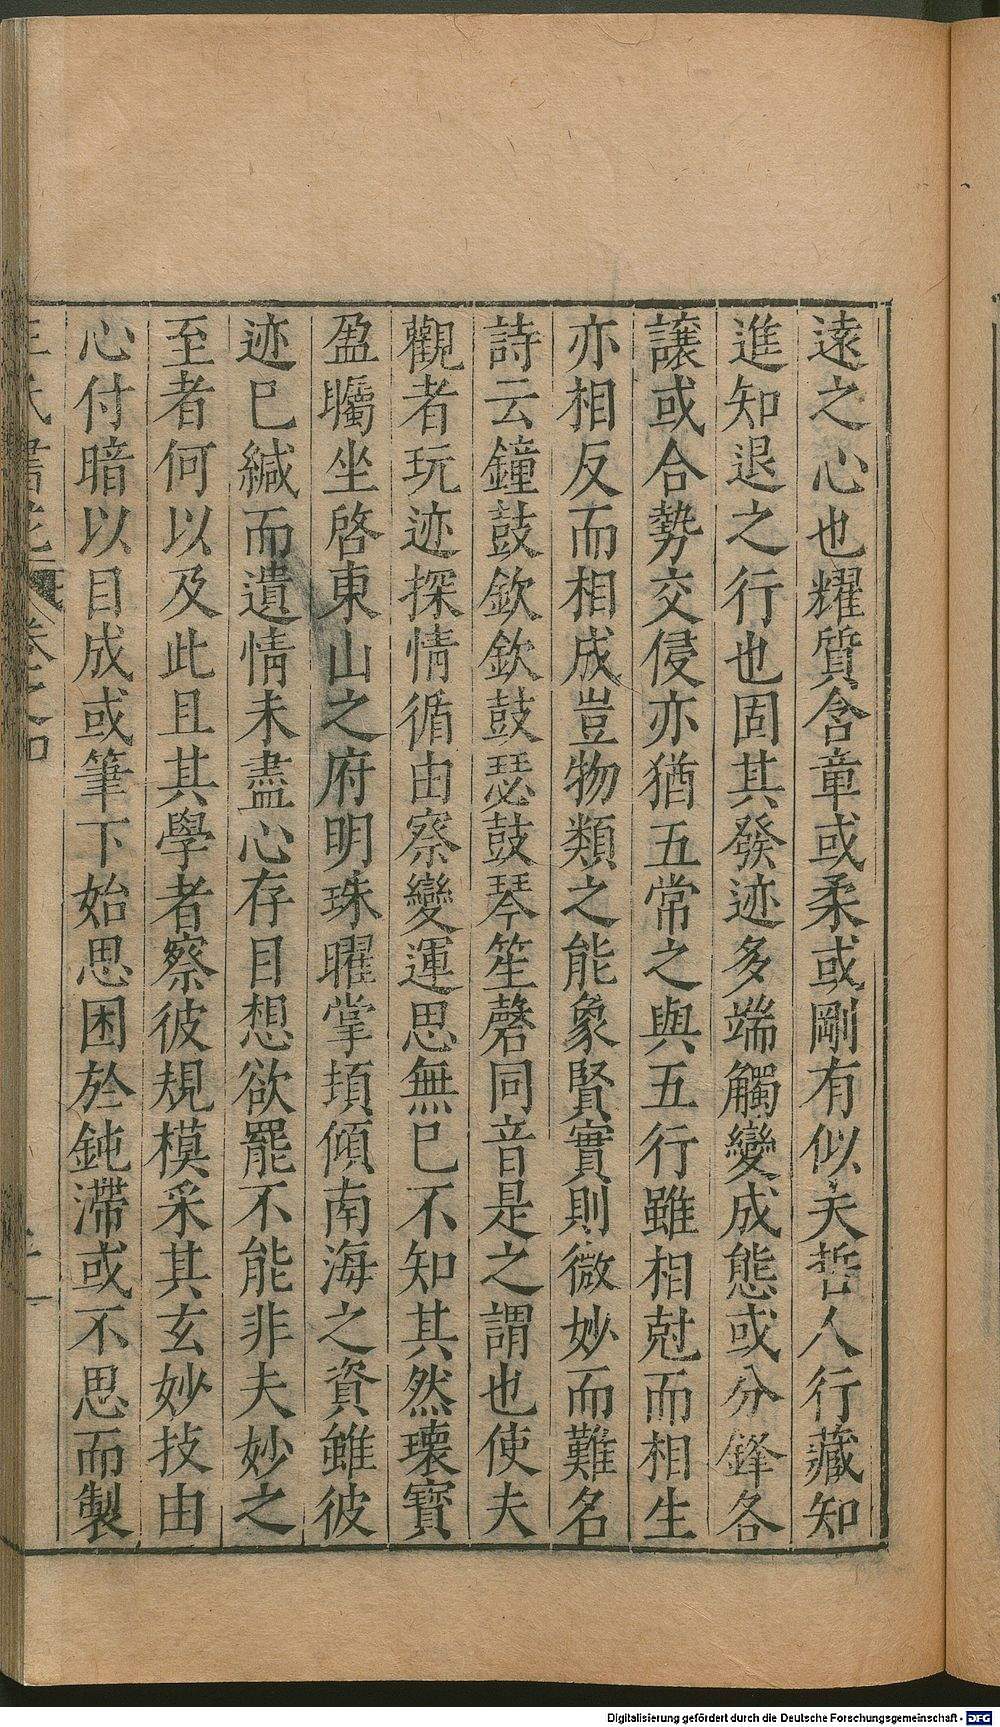 遠之心也耀質含章或柔或剛有似夫哲人行藏知
進知退之行也固其發迹多端觸變成態或分鋒各
讓或合勢交侵亦猶五常之與五行雖相尅而相生
亦相反而相成豈物類之能象賢實則微妙而難名
詩云鐘鼓欽欽鼓瑟鼓琴笙磬同音是之謂也使夫
觀者玩迹探情循由察變運思無已不知其然瓌寶
盈矚坐啓東山之府明珠曜掌頃傾南海之資雖彼
迹已緘而遺情未盡心存目想欲罷不能非夫妙之
至者何以及此且其學者察彼規模采其玄妙技由
心付暗以目成或筆下始思困於鈍滯或不思而製
王氏書苑 卷之四
Digitalisierung gefördert durch die Deutsche Forschungsgemeinschaft - DFG